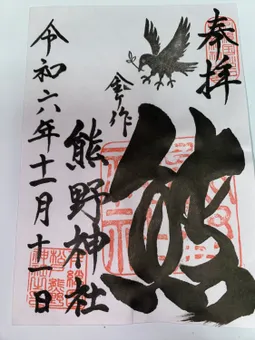 奉拝
熊
金作
熊野神社
令和六年十一月十一日